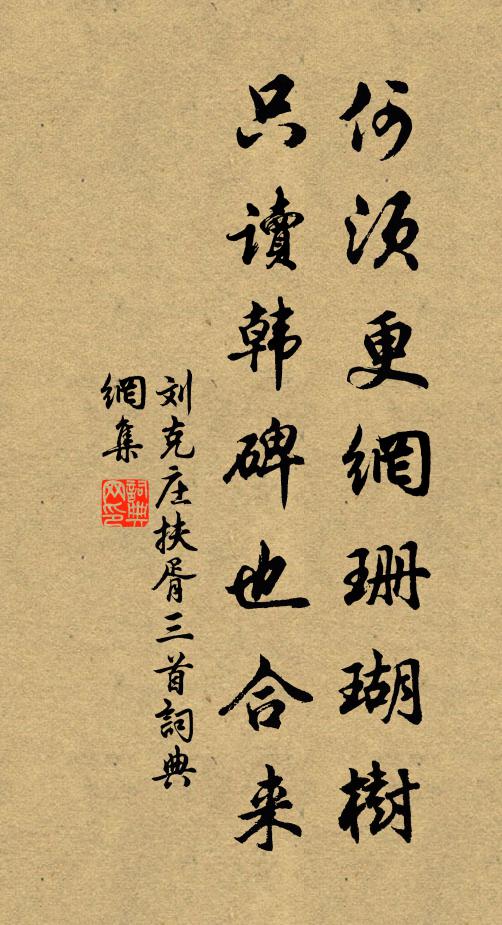 何须更網珊瑚樹
只讀韩碑也合来
刘克庄扶胥三首詞典
網集
詞典網印